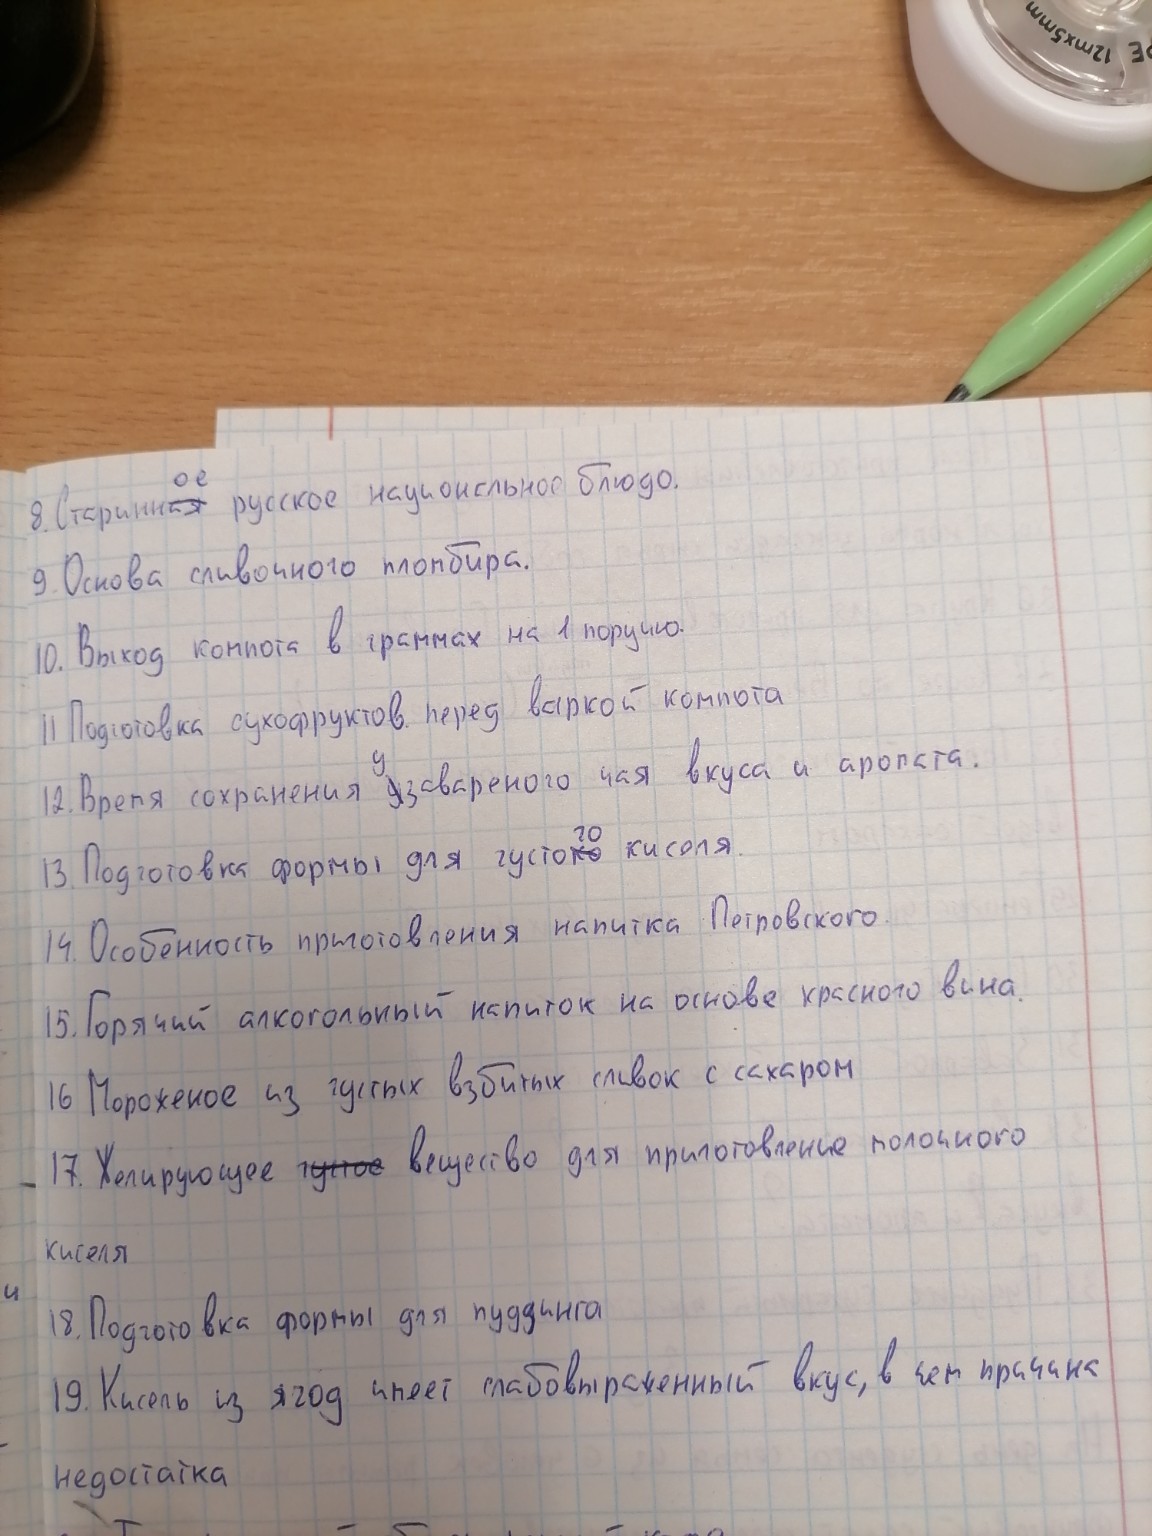 12mx5mm
8. Старинное русское национальное блюдо.
9. Основа сливочного пломбира.
10. Выход компота в граммах на 1 порцию.
11 Подготовка сухофруктов перед варкой компота
12. Время сохранения у завареного чая вкуса и аромата.
13. Подготовка формы для густого киселя.
14. Особенность приготовления напитка Петровского.
15. Горячий алкогольный напиток на основе красного вина.
16 Мороженое из густых взбитых сливок с сахаром
17. Желирующее густое вещество для приготовление молочного
киселя
18. Подготовка формы для пуддинга
19. Кисель из ягод имеет слабовыраженный вкус, в чем причина
недостатка